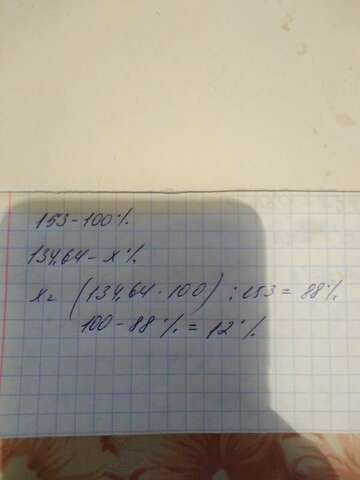 153 - 100%
134,64 - x%
x = (134,64 · 100) : 153 = 88%
100 - 88% = 12%